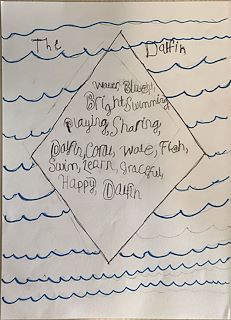 The Dalfin
Water, Blueish
Bright, Swimming
Playing, Sharing,
Dalfin, Coral, Wate, Fish,
Swim, Learn, Graceful,
Happy, Dalfin